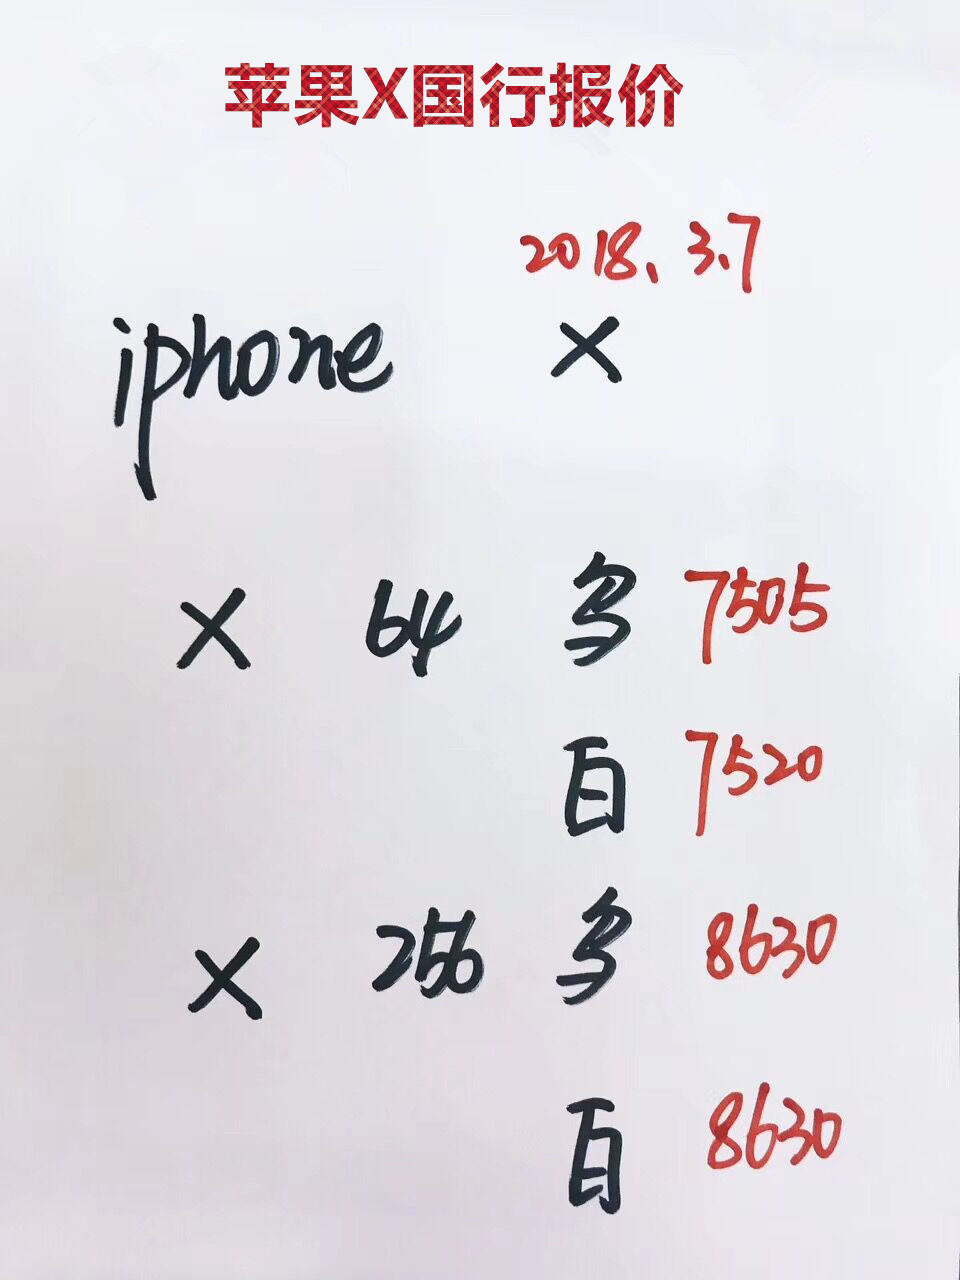 苹果X国行报价
2018.3.7
iphone X
X 64 乌 7505
百 7520
X 256 乌 8630
百 8630